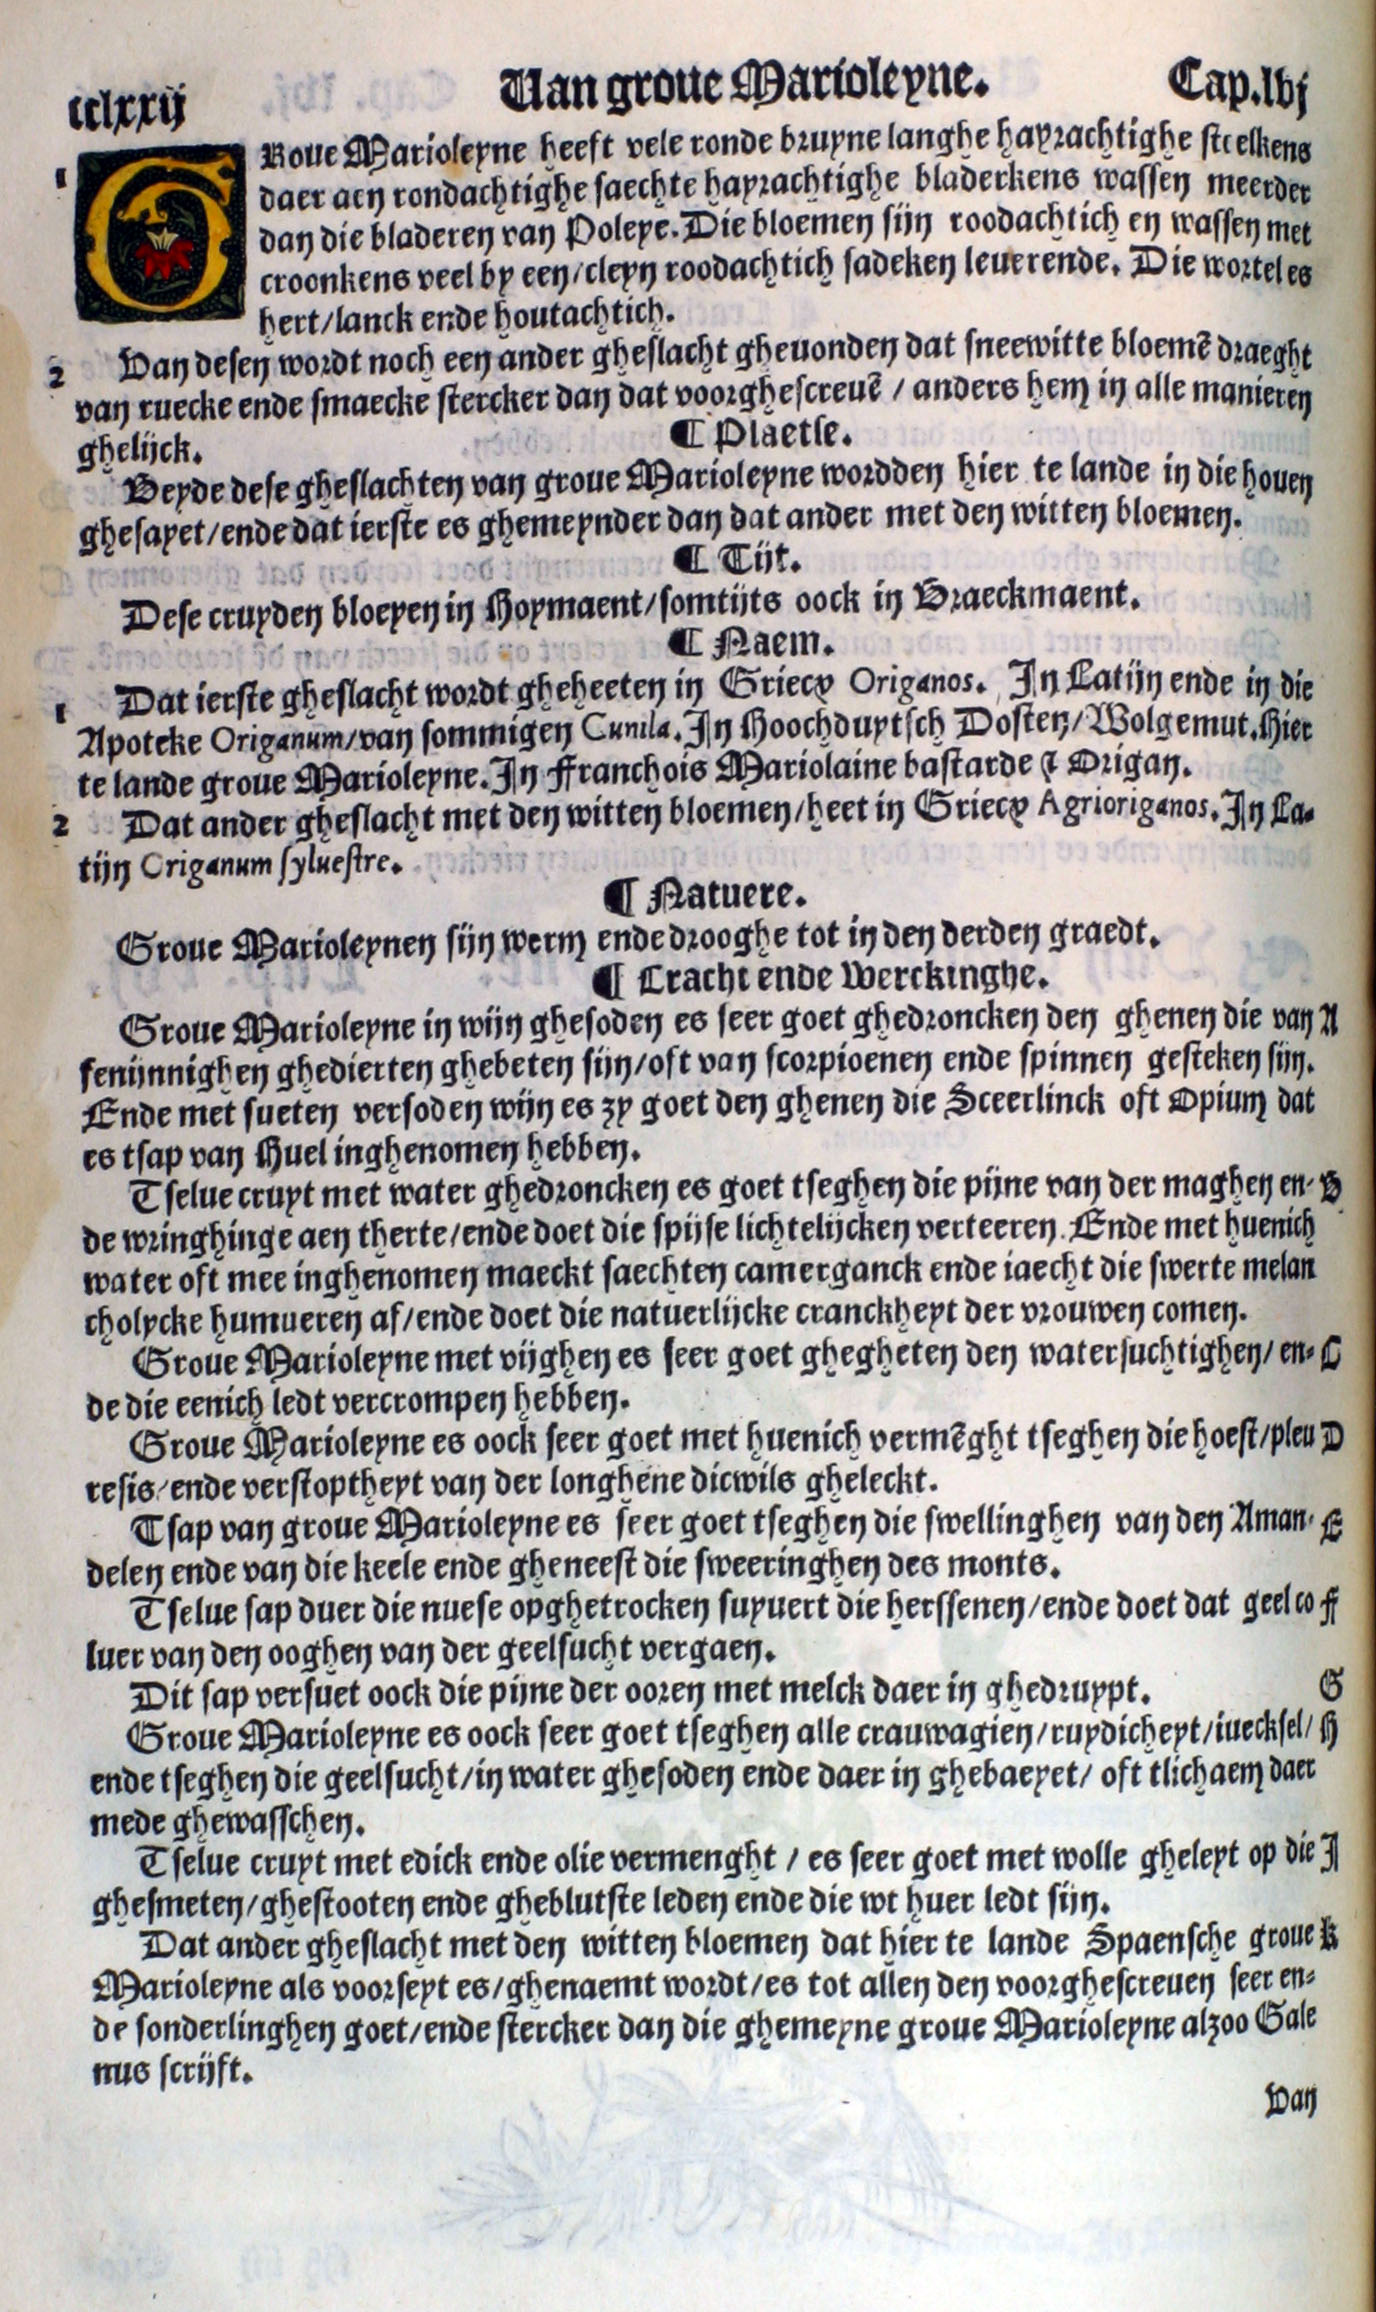 cclxxij Van groue Marioleyne. Cap.lvj
1 GRoue Marioleyne heeft vele ronde bruyne langhe hayrachtighe steelkens
daer aen rondachtighe saechte hayrachtighe bladerkens wassen meerder
dan die bladeren van Poleye. Die bloemen sijn roodachtich en wassen met
croonkens veel by een/cleyn roodachtich sadeken leuerende. Die wortel es
hert/lanck ende houtachtich.
2 Van desen wordt noch een ander gheslacht gheuonden dat sneewitte bloemē draeght
van ruecke ende smaecke stercker dan dat voorghescreuē / anders hem in alle manieren
ghelijck.
¶ Plaetse.
Beyde dese gheslachten van groue Marioleyne wordden hier te lande in die houen
ghesayet/ende dat ierste es ghemeynder dan dat ander met den witten bloemen.
¶ Tijt.
Dese cruyden bloeyen in Hoymaent/somtijts oock in Braeckmaent.
¶ Naem.
1 Dat ierste gheslacht wordt gheheeten in Griecx Origanos. In Latijn ende in die
Apoteke Origanum/van sommigen Cunila. In Hoochduytsch Dosten/Wolgemut. Hier
te lande groue Marioleyne. In Franchois Mariolaine bastarde ⁊ Origan.
2 Dat ander gheslacht met den witten bloemen/heet in Griecx Agrioriganos. In La-
tijn Origanum syluestre.
¶ Natuere.
Groue Marioleynen sijn werm ende drooghe tot in den derden graedt.
¶ Cracht ende Werckinghe.
Groue Marioleyne in wijn ghesoden es seer goet ghedroncken den ghenen die van A
fenijnnighen ghedierten ghebeten sijn/oft van scorpioenen ende spinnen gesteken sijn.
Ende met sueten versoden wijn es zy goet den ghenen die Sceerlinck oft Opium dat
es tsap van Huel inghenomen hebben.
Tselue cruyt met water ghedroncken es goet tseghen die pijne van der maghen en- B
de wringhinge aen therte/ende doet die spijse lichtelijcken verteeren. Ende met huenich
water oft mee inghenomen maeckt saechten camerganck ende iaecht die swerte melan
cholycke humueren af/ende doet die natuerlijcke cranckheyt der vrouwen comen.
Groue Marioleyne met vijghen es seer goet ghegheten den watersuchtighen/ en- C
de die eenich ledt vercrompen hebben.
Groue Marioleyne es oock seer goet met huenich vermēght tseghen die hoest/pleu D
resis/ende verstoptheyt van der longhene dicwils gheleckt.
Tsap van groue Marioleyne es seer goet tseghen die swellinghen van den Aman- E
delen ende van die keele ende gheneest die sweeringhen des monts.
Tselue sap duer die nuese opghetrocken suyuert die herssenen/ende doet dat geel co F
luer van den ooghen van der geelsucht vergaen.
Dit sap versuet oock die pijne der ooren met melck daer in ghedruypt. G
Groue Marioleyne es oock seer goet tseghen alle crauwagien/ruydicheyt/iuecksel/ H
ende tseghen die geelsucht/in water ghesoden ende daer in ghebaeyet/ oft tlichaem daer
mede ghewasschen.
Tselue cruyt met edick ende olie vermenght / es seer goet met wolle gheleyt op die I
ghesmeten/ghestooten ende gheblutste leden ende die wt huer ledt sijn.
Dat ander gheslacht met den witten bloemen dat hier te lande Spaensche groue K
Marioleyne als voorseyt es/ghenaemt wordt/es tot allen den voorghescreuen seer en-
de sonderlinghen goet/ende stercker dan die ghemeyne groue Marioleyne alzoo Gale
nus scrijft.
Van